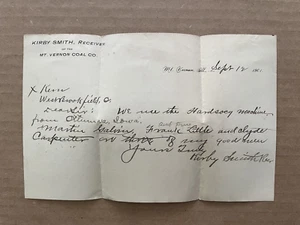 KIRBY SMITH, RECEIVER
OF THE
MT. VERNON COAL CO.
Mt. Vernon Ill. Sept 12
Westbrookfield, O.
Dear Sir: We use the Hardsocg machine,
from Ottumwa Iowa.
Martin Galvin, Frank Little and Clyde
Carpenter or three very good men
Yours Truly
Kirby Smith Rec